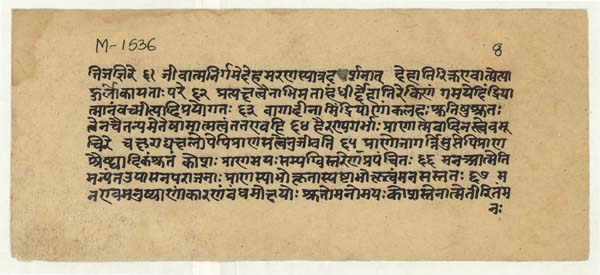 M-1536
8
तिजज्ञिरे ६१ जीवात्मनिर्गमेदेहमरणस्यात्रदर्शनात् देहातिरिक्तएवात्मेत्या
हुर्लोकायताःपरे ६२ प्रत्यक्षत्वेनाभिमताहंधीर्देहातिरेकिणं गमयेदिंद्रिया
त्मानंवच्मीत्यादिप्रयोगतः ६३ वागादीनामिंद्रियाणांकलहःश्रुतिषुश्रुतः
तेनचैतन्यमेतेषामात्मत्वंततएवहि ६४ हैरण्यगर्भाःप्राणात्मवादिनस्त्वेवमू
चिरे चक्षुराद्यक्षलोपेपिप्राणसत्वेतुजीवति ६५ प्राणोजागर्तिसुप्तेपिप्राण
श्रैष्ठ्यादिकंश्रुतं कोशःप्राणमयःसम्यग्विस्तरेणप्रपंचितः ६६ मनआत्मेति
मन्यंतउपासनपराजनाः प्राणस्याभोक्तृतास्पष्टाभोक्तृत्वंमनसस्ततः ६७ म
नएवमनुष्याणांकारणंबंधमोक्षयोः श्रुतोमनोमयःकोशस्तेनात्मेतीरितंम
नः